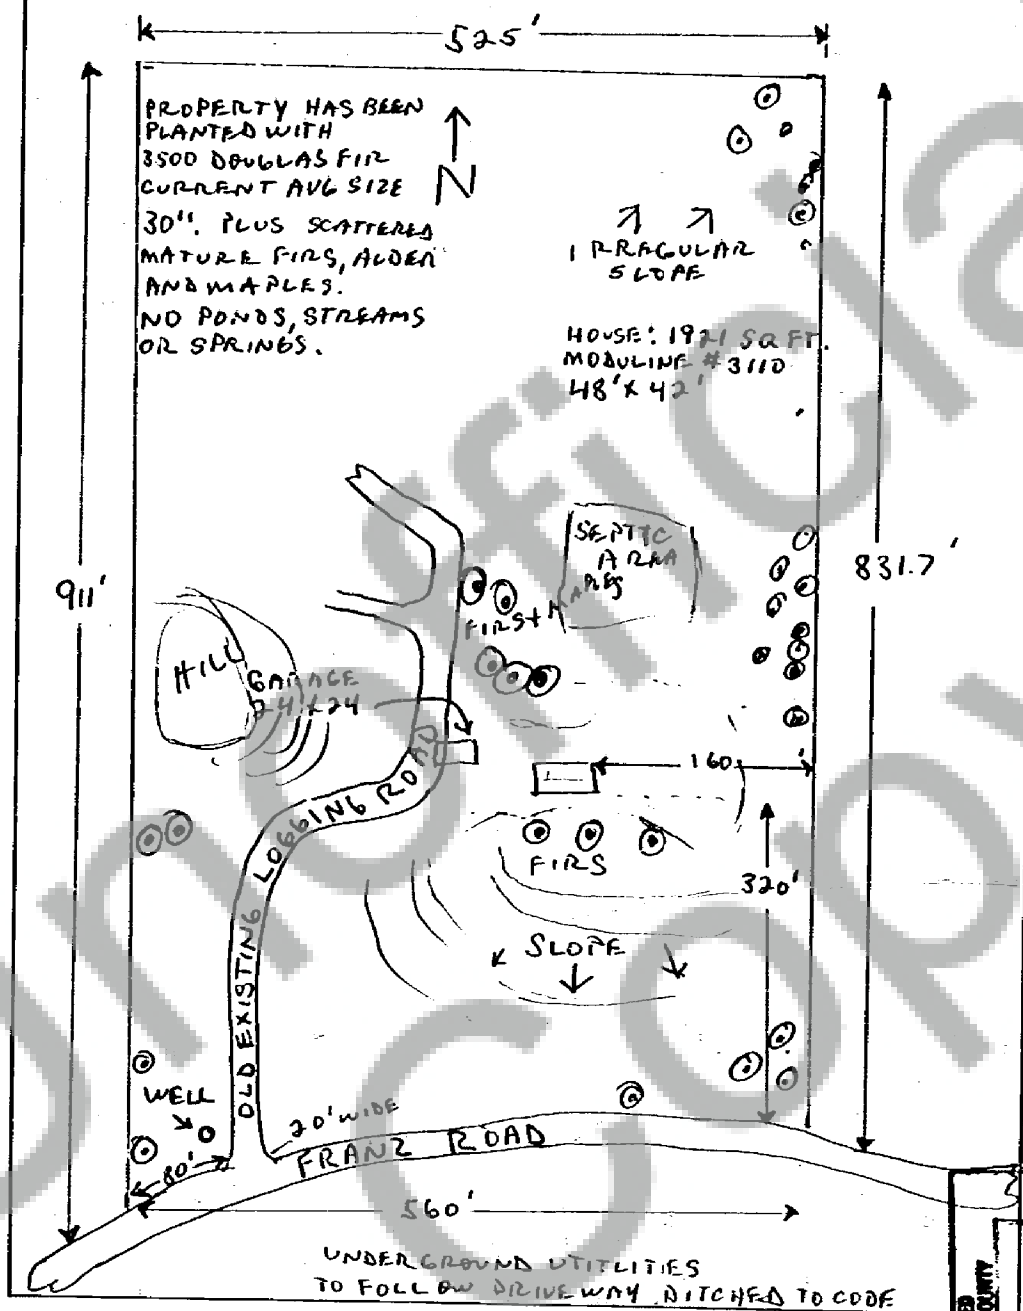 525'
PROPERTY HAS BEEN
PLANTED WITH
3500 DOUGLAS FIR
CURRENT AVG SIZE
30". PLUS SCATTERED
MATURE FIRS, ALDER
AND MAPLES.
NO PONDS, STREAMS
OR SPRINGS.
N
IRREGULAR
SLOPE
HOUSE: 1921 SQ FT.
MODULINE #3110
48' X 42'
911'
831.7'
SEPTIC
AREA
FIRS + MAPLES
HILL
GARAGE
24' X 24
160
OLD EXISTING LOGGING ROAD
FIRS
320'
SLOPE
WELL
20' WIDE
FRANZ ROAD
80'
560'
UNDERGROUND UTITLITIES
TO FOLLOW DRIVEWAY DITCHED TO CODE
Unofficial
Copy